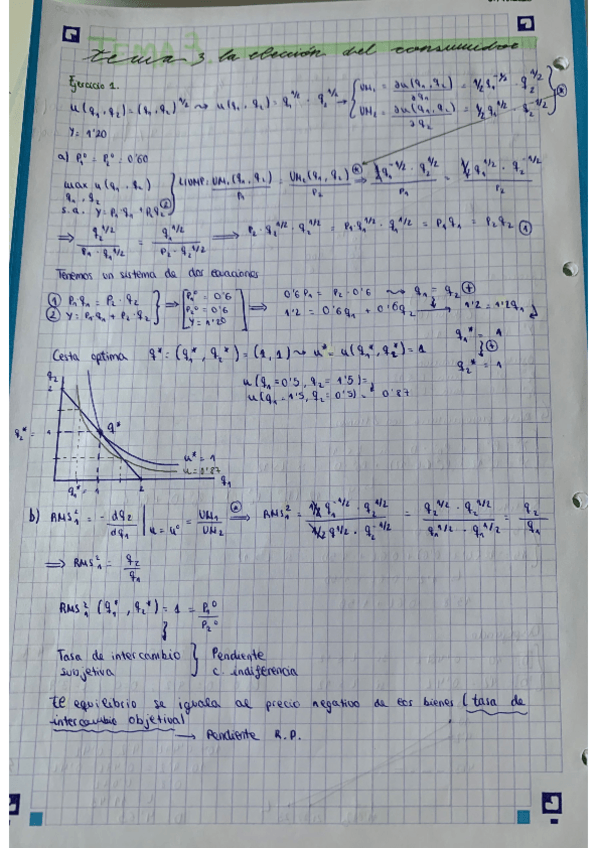 tema 3. la elección del consumidor
Ejercicio 1.
u(q₁,q₂)=(q₁,q₂)^1/2 ⇝ u(q₁,q₂)=q₁^1/2 · q₂^1/2 → { UM₁ = ∂u(q₁,q₂)/∂q₁ = 1/2 q₁^-1/2 · q₂^1/2
UM₂ = ∂u(q₁,q₂)/∂q₂ = 1/2 q₁^1/2 · q₂^-1/2 } *
y = 1'20
a) P₁⁰ = P₂⁰ = 0'60
max u(q₁,q₂)
q₁,q₂
s.a. y = P₁q₁ + P₂q₂ ②
UM₁(q₁,q₂)/P₁ = UM₂(q₁,q₂)/P₂ ⇒ 1/2 q₁^-1/2 · q₂^1/2/P₁ = 1/2 q₁^1/2 · q₂^-1/2/P₂
⇒ q₂^1/2/P₁·q₁^1/2 = q₁^1/2/P₂·q₂^1/2 ⇒ P₂·q₂^1/2·q₂^1/2 = P₁·q₁^1/2·q₁^1/2 = P₁q₁ = P₂q₂ ①
Tenemos un sistema de dos ecuaciones
① P₁q₁ = P₂·q₂ } ⇒ [P₁⁰ = 0'6 ⇒ 0'6P₁ = P₂·0'6 ⇝ q₁ = q₂
② y = P₁q₁ + P₂·q₂ P₂⁰ = 0'6
y = 1'20] 1'2 = 0'6q₁ + 0'6q₂ → 1'2 = 1'2q₁
q₁* = 1
q₂* = 1
Cesta óptima q* = (q₁*,q₂*) = (1,1) ⇝ u* = u(q₁*,q₂*) = 1
u(q₁=0'5, q₂=1'5) =
u(q₁=1'5, q₂=0'5) = 0'87
q₂
2
q*
q₂* = 1
u* = 1
u = 0'87
q₁* = 1 2 q₁
b) RMS₁² = - dq₂/dq₁ | u = u⁰ = UM₁/UM₂ ⇒ RMS₁² = 1/2 q₁^-1/2 · q₂^1/2 / 1/2 q₁^1/2 · q₂^-1/2 = q₂^1/2 · q₂^1/2 / q₁^1/2 · q₁^1/2 = q₂/q₁
⇒ RMS₁² = q₂/q₁
RMS₁² (q₁*, q₂*) = 1 = P₁⁰/P₂⁰
Tasa de intercambio } Pendiente
subjetiva c. indiferencia
equilibrio se iguala al precio negativo de los bienes (tasa de
intercambio objetiva)
→ Pendiente R.P.